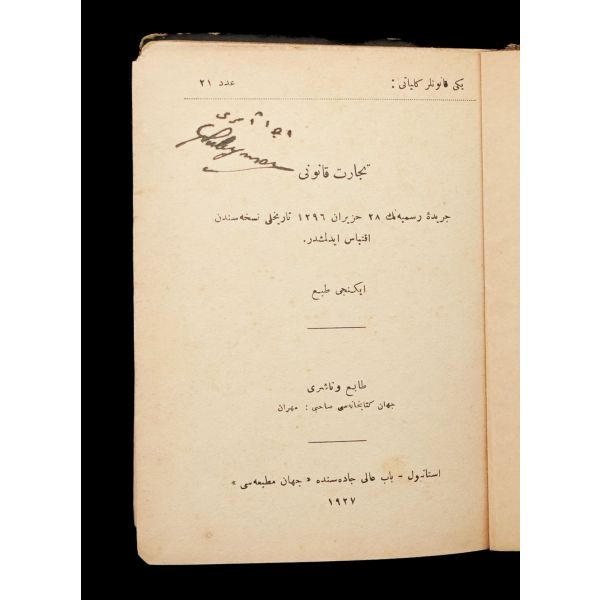 یکی قانونلر کلیاتی :
عدد ٢١
تجارت قانونی
جریدهٔ رسمیه‌نك ٢٨ حزیران ١٢٩٦ تاریخلی نسخه‌سندن
اقتباس ایدلمشدر.
ایکنجی طبع
طابع و ناشری
جهان کتابخانه‌سی صاحبی : مهران
استانبول - باب عالی جاده‌سنده « جهان مطبعه‌سی »
١٩٢٧